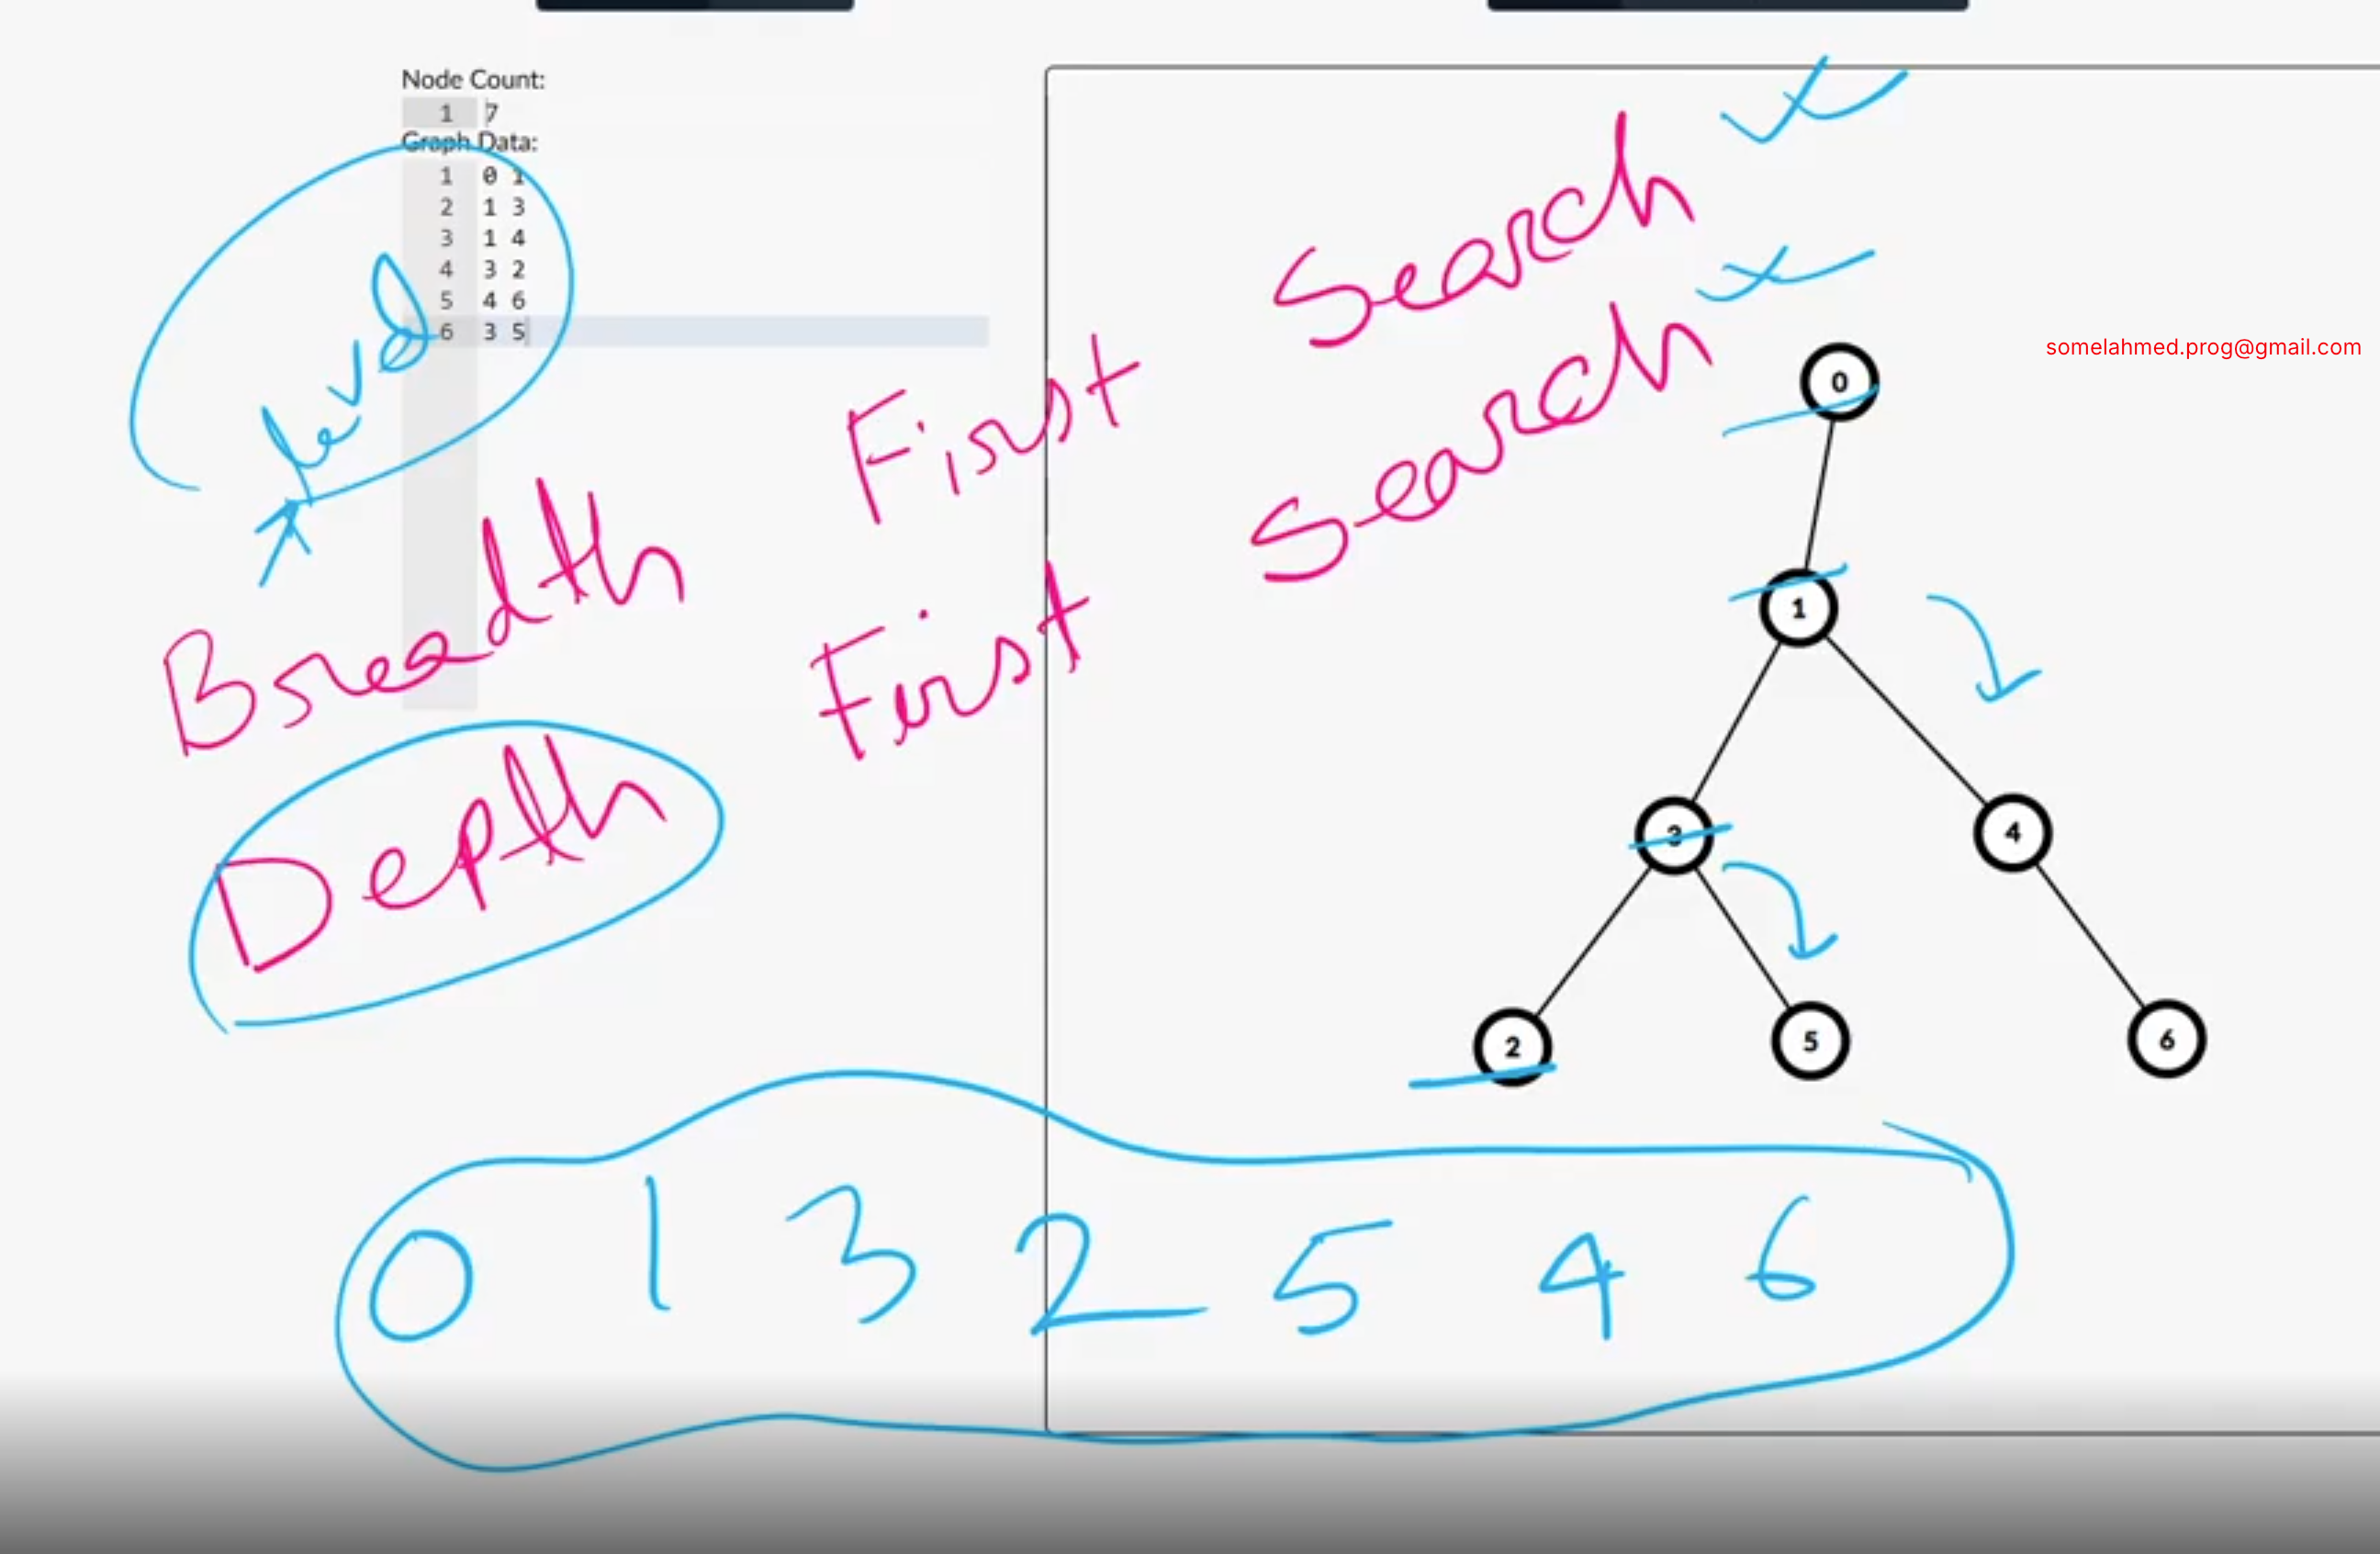 Node Count:
1 7
Graph Data:
1 0 1
2 1 3
3 1 4
4 3 2
5 4 6
6 3 5
level
Breadth First Search
Depth First Search
somelahmed.prog@gmail.com
0
1
3 4
2 5 6
0 1 3 2 5 4 6